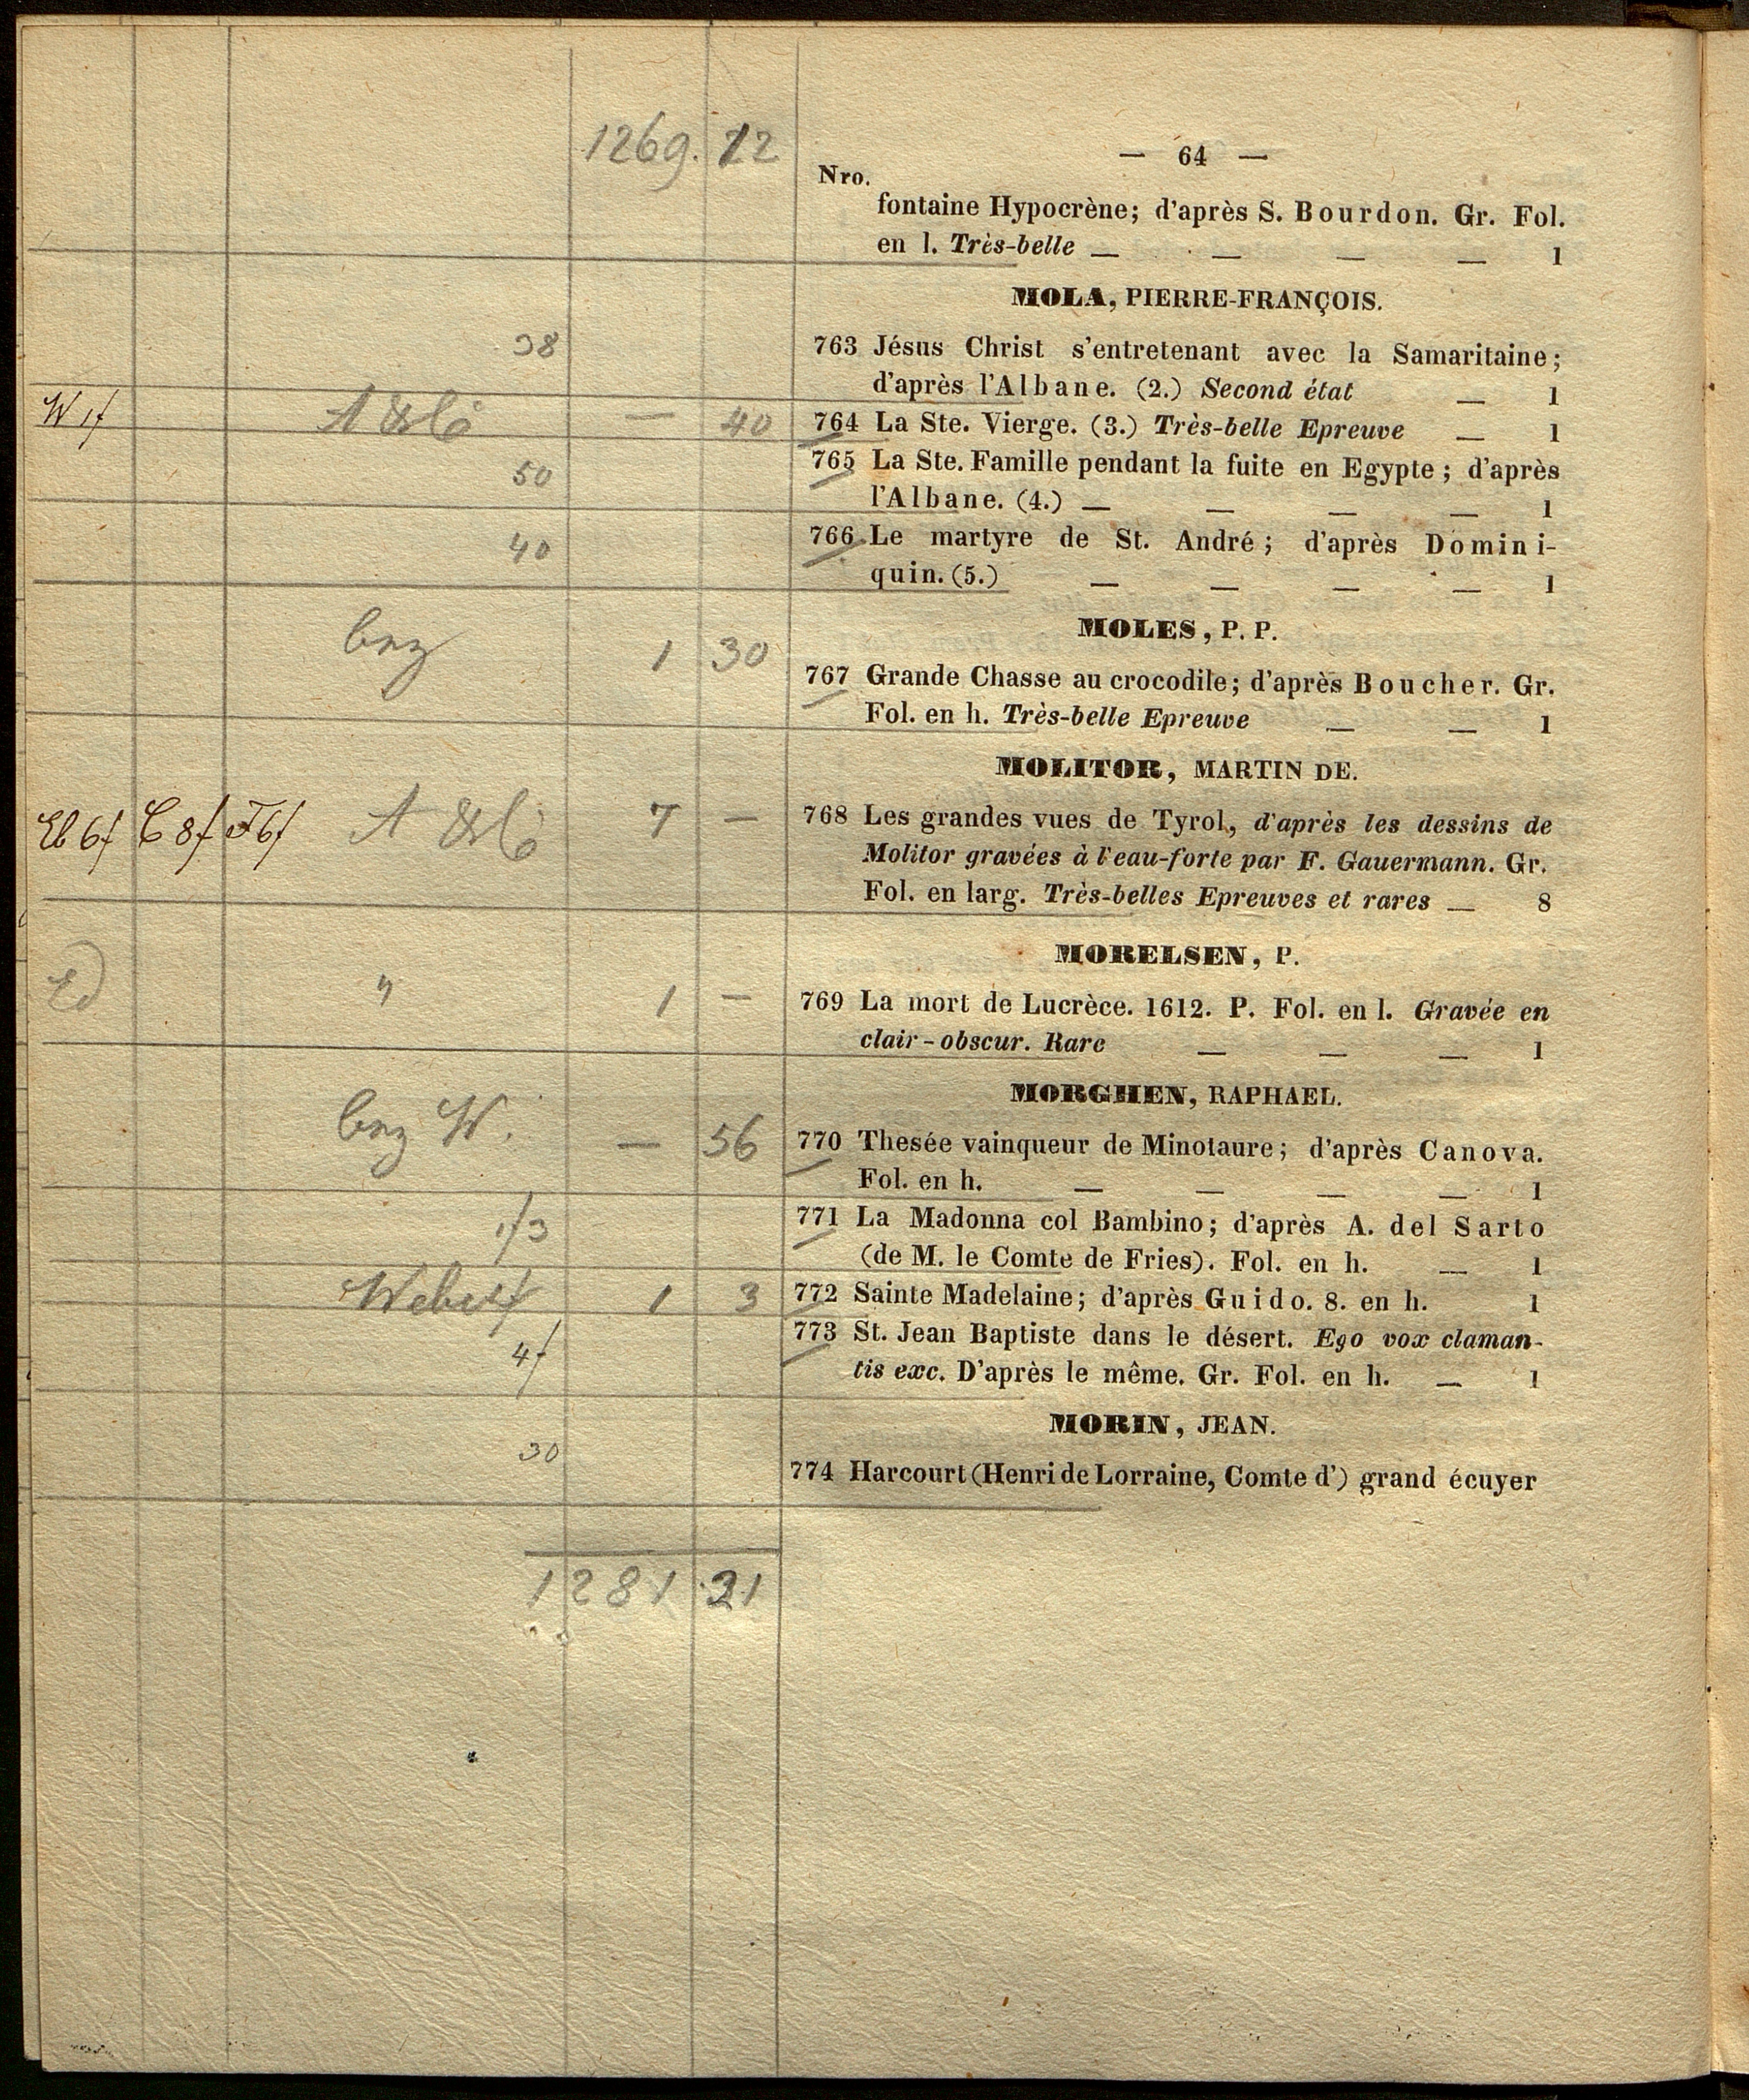 1269. 12
— 64 —
Nro.
fontaine Hypocrène; d'après S. Bourdon. Gr. Fol.
en l. Très-belle — — — — 1
MOLA, PIERRE-FRANÇOIS.
38
763 Jésus Christ s'entretenant avec la Samaritaine;
d'après l'Albane. (2.) Second état — 1
W 1f — 40 764 La Ste. Vierge. (3.) Très-belle Epreuve — 1
50 765 La Ste. Famille pendant la fuite en Egypte; d'après
l'Albane. (4.) — — — — 1
40 766 Le martyre de St. André; d'après Domini-
quin. (5.) — — — — 1
MOLES, P. P.
1 30 767 Grande Chasse au crocodile; d'après Boucher. Gr.
Fol. en h. Très-belle Epreuve — — 1
MOLITOR, MARTIN DE.
7 — 768 Les grandes vues de Tyrol, d'après les dessins de
Molitor gravées à l'eau-forte par F. Gauermann. Gr.
Fol. en larg. Très-belles Epreuves et rares — 8
MORELSEN, P.
" 1 — 769 La mort de Lucrèce. 1612. P. Fol. en l. Gravée en
clair-obscur. Rare — — — 1
MORGHEN, RAPHAEL.
W. — 56 770 Thesée vainqueur de Minotaure; d'après Canova.
Fol. en h. — — — — 1
1f3 771 La Madonna col Bambino; d'après A. del Sarto
(de M. le Comte de Fries). Fol. en h. — 1
1 3 772 Sainte Madelaine; d'après Guido. 8. en h. 1
4f 773 St. Jean Baptiste dans le désert. Ego vox claman-
tis exc. D'après le même. Gr. Fol. en h. — 1
MORIN, JEAN.
30 774 Harcourt (Henri de Lorraine, Comte d') grand écuyer
1281 21